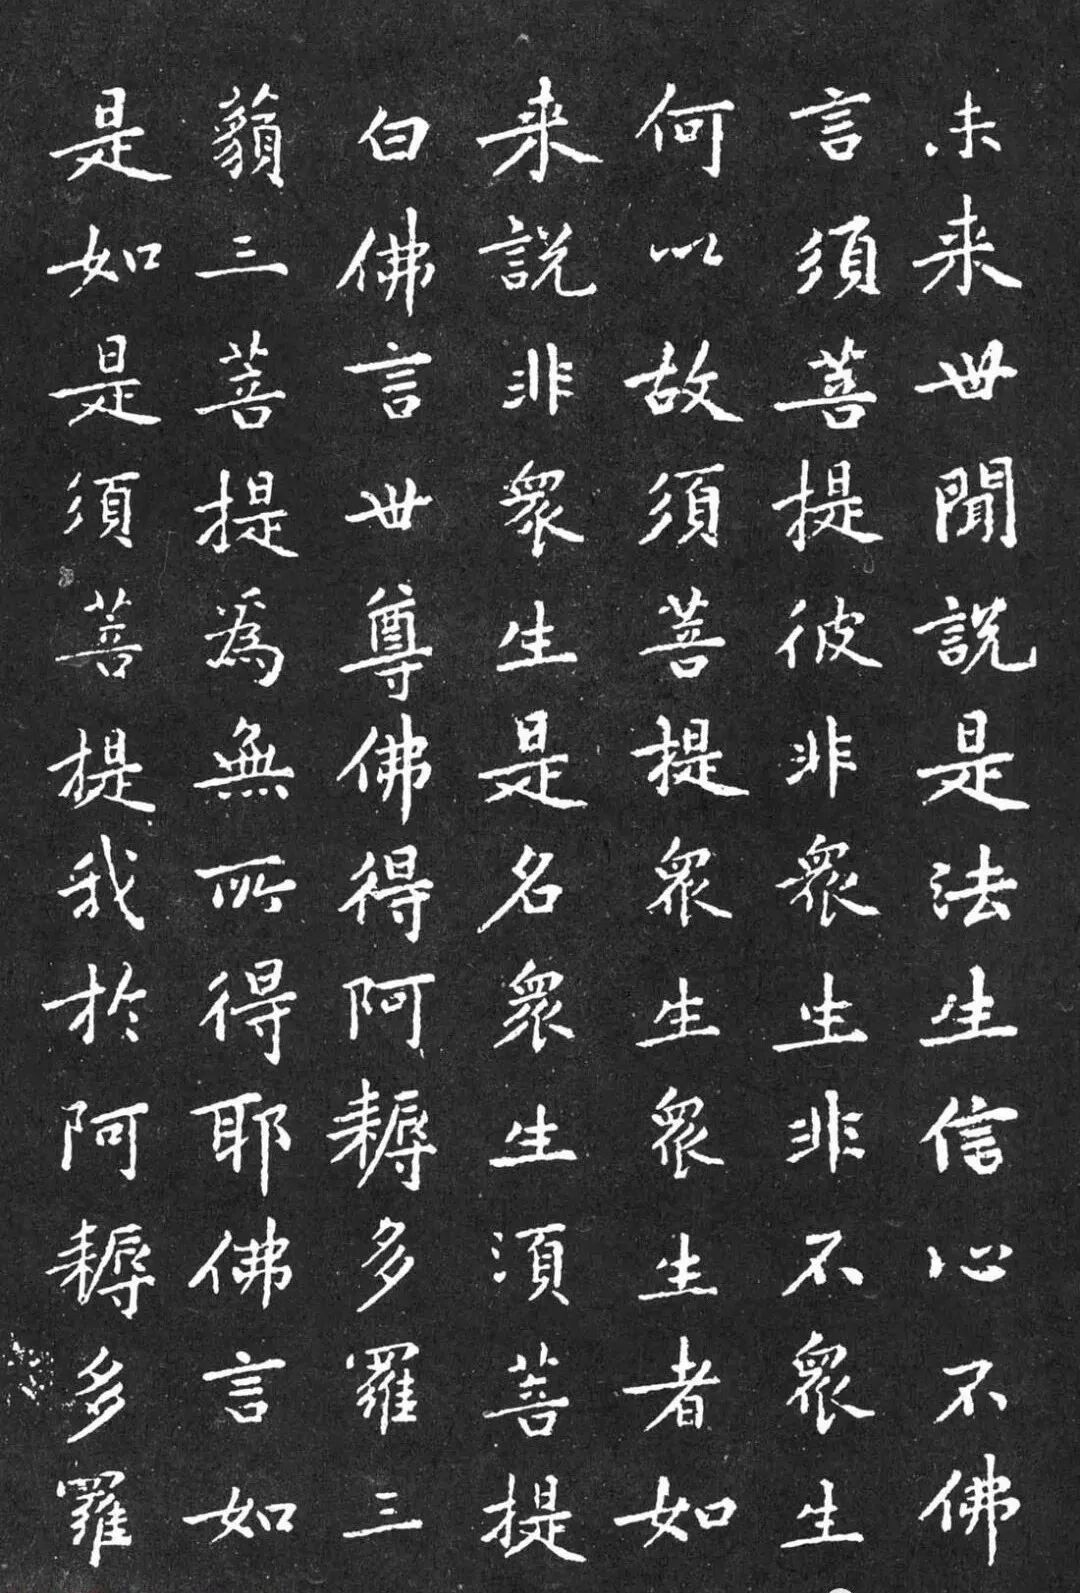 未来世聞說是法生信心不佛
言須菩提彼非衆生非不衆生
何以故須菩提衆生衆生者如
来說非衆生是名衆生須菩提
白佛言世尊佛得阿耨多羅三
藐三菩提為無所得耶佛言如
是如是須菩提我於阿耨多羅